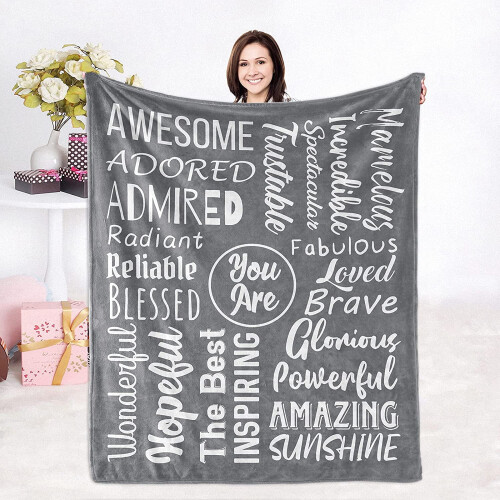 AWESOME
ADORED
ADMIRED
Radiant
Reliable
BLESSED
Trustable
Spectacular
Incredible
Marvelous
Fabulous
Loved
Brave
You
Are
Wonderful
Hopeful
The Best
INSPIRING
Glorious
Powerful
AMAZING
SUNSHINE